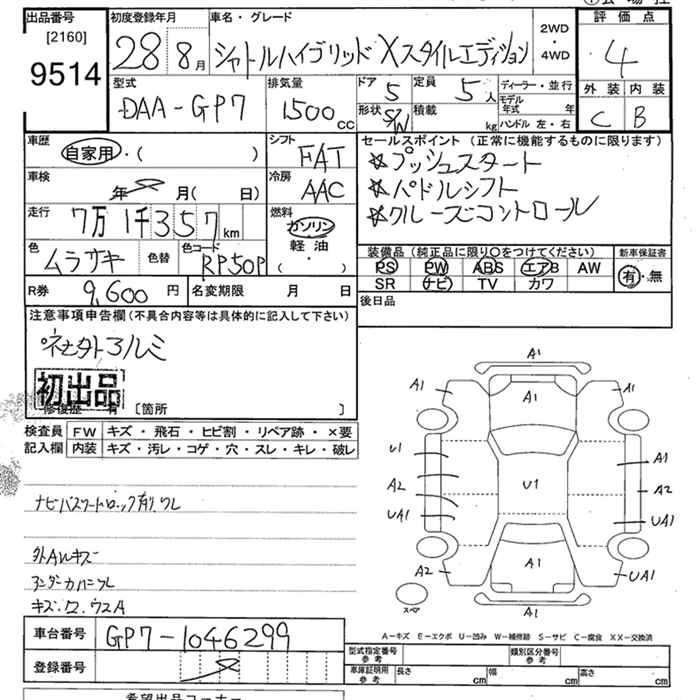 出品番号
[2160]
9514
初度登録年月
28 8月
車名・グレード
シャトルハイブリッド Xスタイルエディション
2WD
・
4WD
評価点
4
外装 内装
C B
型式
DAA-GP7
排気量
1500 CC
ドア 5
定員 5人
形状 S/W
積載 kg
ディーラー・並行
モデル年式 年
ハンドル 左・右
車歴
自家用・( )
シフト
FAT
セールスポイント (正常に機能するものに限ります)
☆プッシュスタート
☆パドルシフト
☆クルーズコントロール
車検
年 月( 日)
冷房
AAC
走行
7万1千357km
燃料
ガソリン
軽油
( ・ )
色
ムラサキ
色替
色コード
RP50P
装備品 (純正品に限り○をつけてください)
PS PW ABS エアB AW
SR ナビ TV カワ
新車保証書
有・無
R券 9,600円
名変期限 月 日
後日品
注意事項申告欄(不具合内容等は具体的に記入して下さい)
初出品
修復歴 有 〔箇所 〕
検査員記入欄
FW キズ・飛石・ヒビ割・リペア跡・×要
内装 キズ・汚レ・コゲ・穴・スレ・キレ・破レ
外Aルキズ
A1
A1 A1 A1
U1 A1
A2 U1 A2
UA1 UA1
A2 A1 UA1
スペア
A1
A－キズ E－エクボ U－凹み W－補修跡 S－サビ C－腐食 XX－交換済
車台番号 GP7-1046299
登録番号
型式指定番号 参考
類別区分番号 参考
車庫証明用 参考
長さ cm 幅 cm 高さ cm
希望出品コーナー